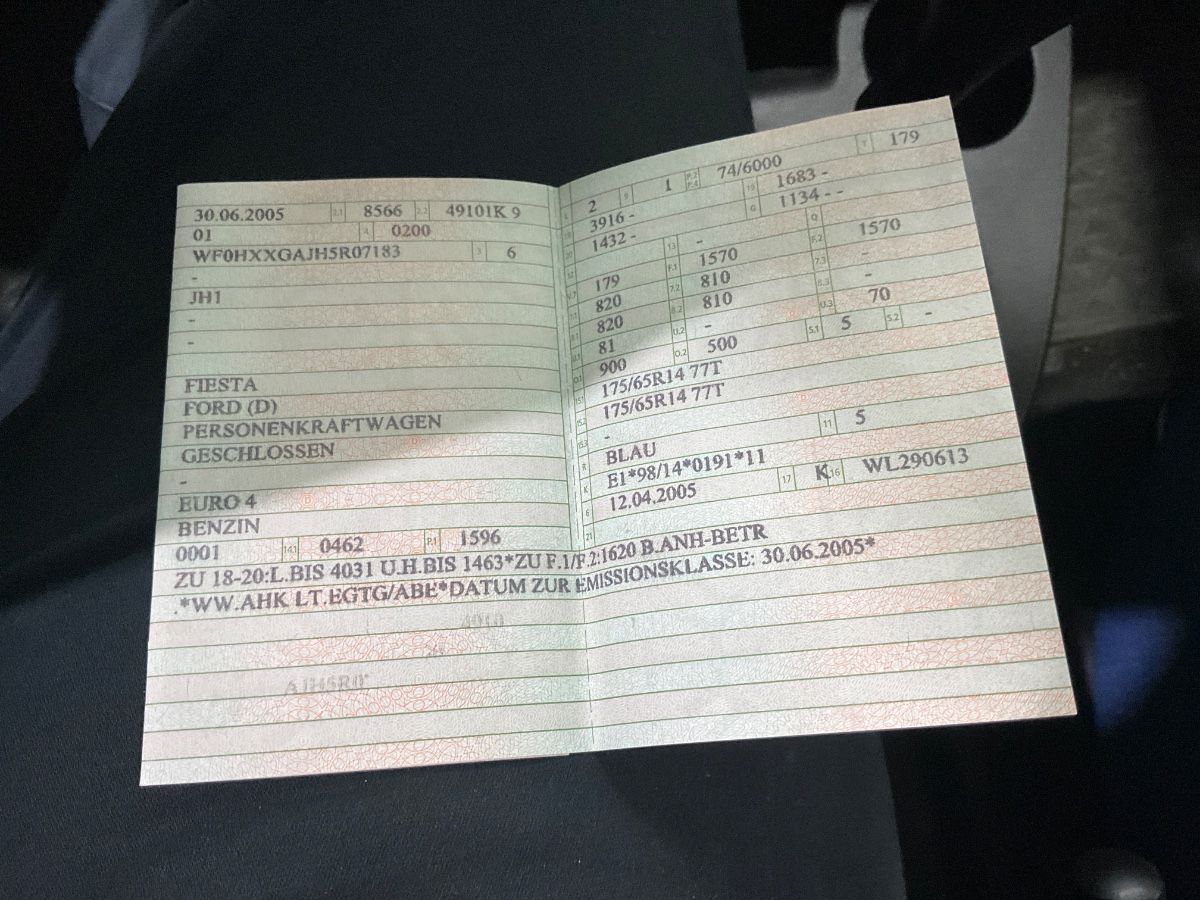 30.06.2005 2.1 8566 2.2 49101K 9
01 4 0200
WF0HXXGAJH5R07183 3 6
-
JH1
-
-
FIESTA
FORD (D)
PERSONENKRAFTWAGEN
GESCHLOSSEN
-
EURO 4
BENZIN
0001 14.1 0462 P.1 1596
L 2 9 1 P.2 P.4 74/6000 T 179
18 3916 - 19 1683 -
20 1432 - G 1134 - -
12 13 - Q
V.7 179 F.1 1570 F.2 1570
7.1 820 7.2 810 7.3 -
8.1 820 8.2 810 8.3 -
U.1 81 U.2 - U.3 70
O.1 900 O.2 500 S.1 5 S.2 -
15.1 175/65R14 77T
15.2 175/65R14 77T
15.3 -
R BLAU 11 5
K E1*98/14*0191*11
6 12.04.2005 17 K 16 WL290613
21
ZU 18-20:L.BIS 4031 U.H.BIS 1463*ZU F.1/F.2:1620 B.ANH-BETR
.*WW.AHK LT.EGTG/ABE*DATUM ZUR EMISSIONSKLASSE: 30.06.2005*